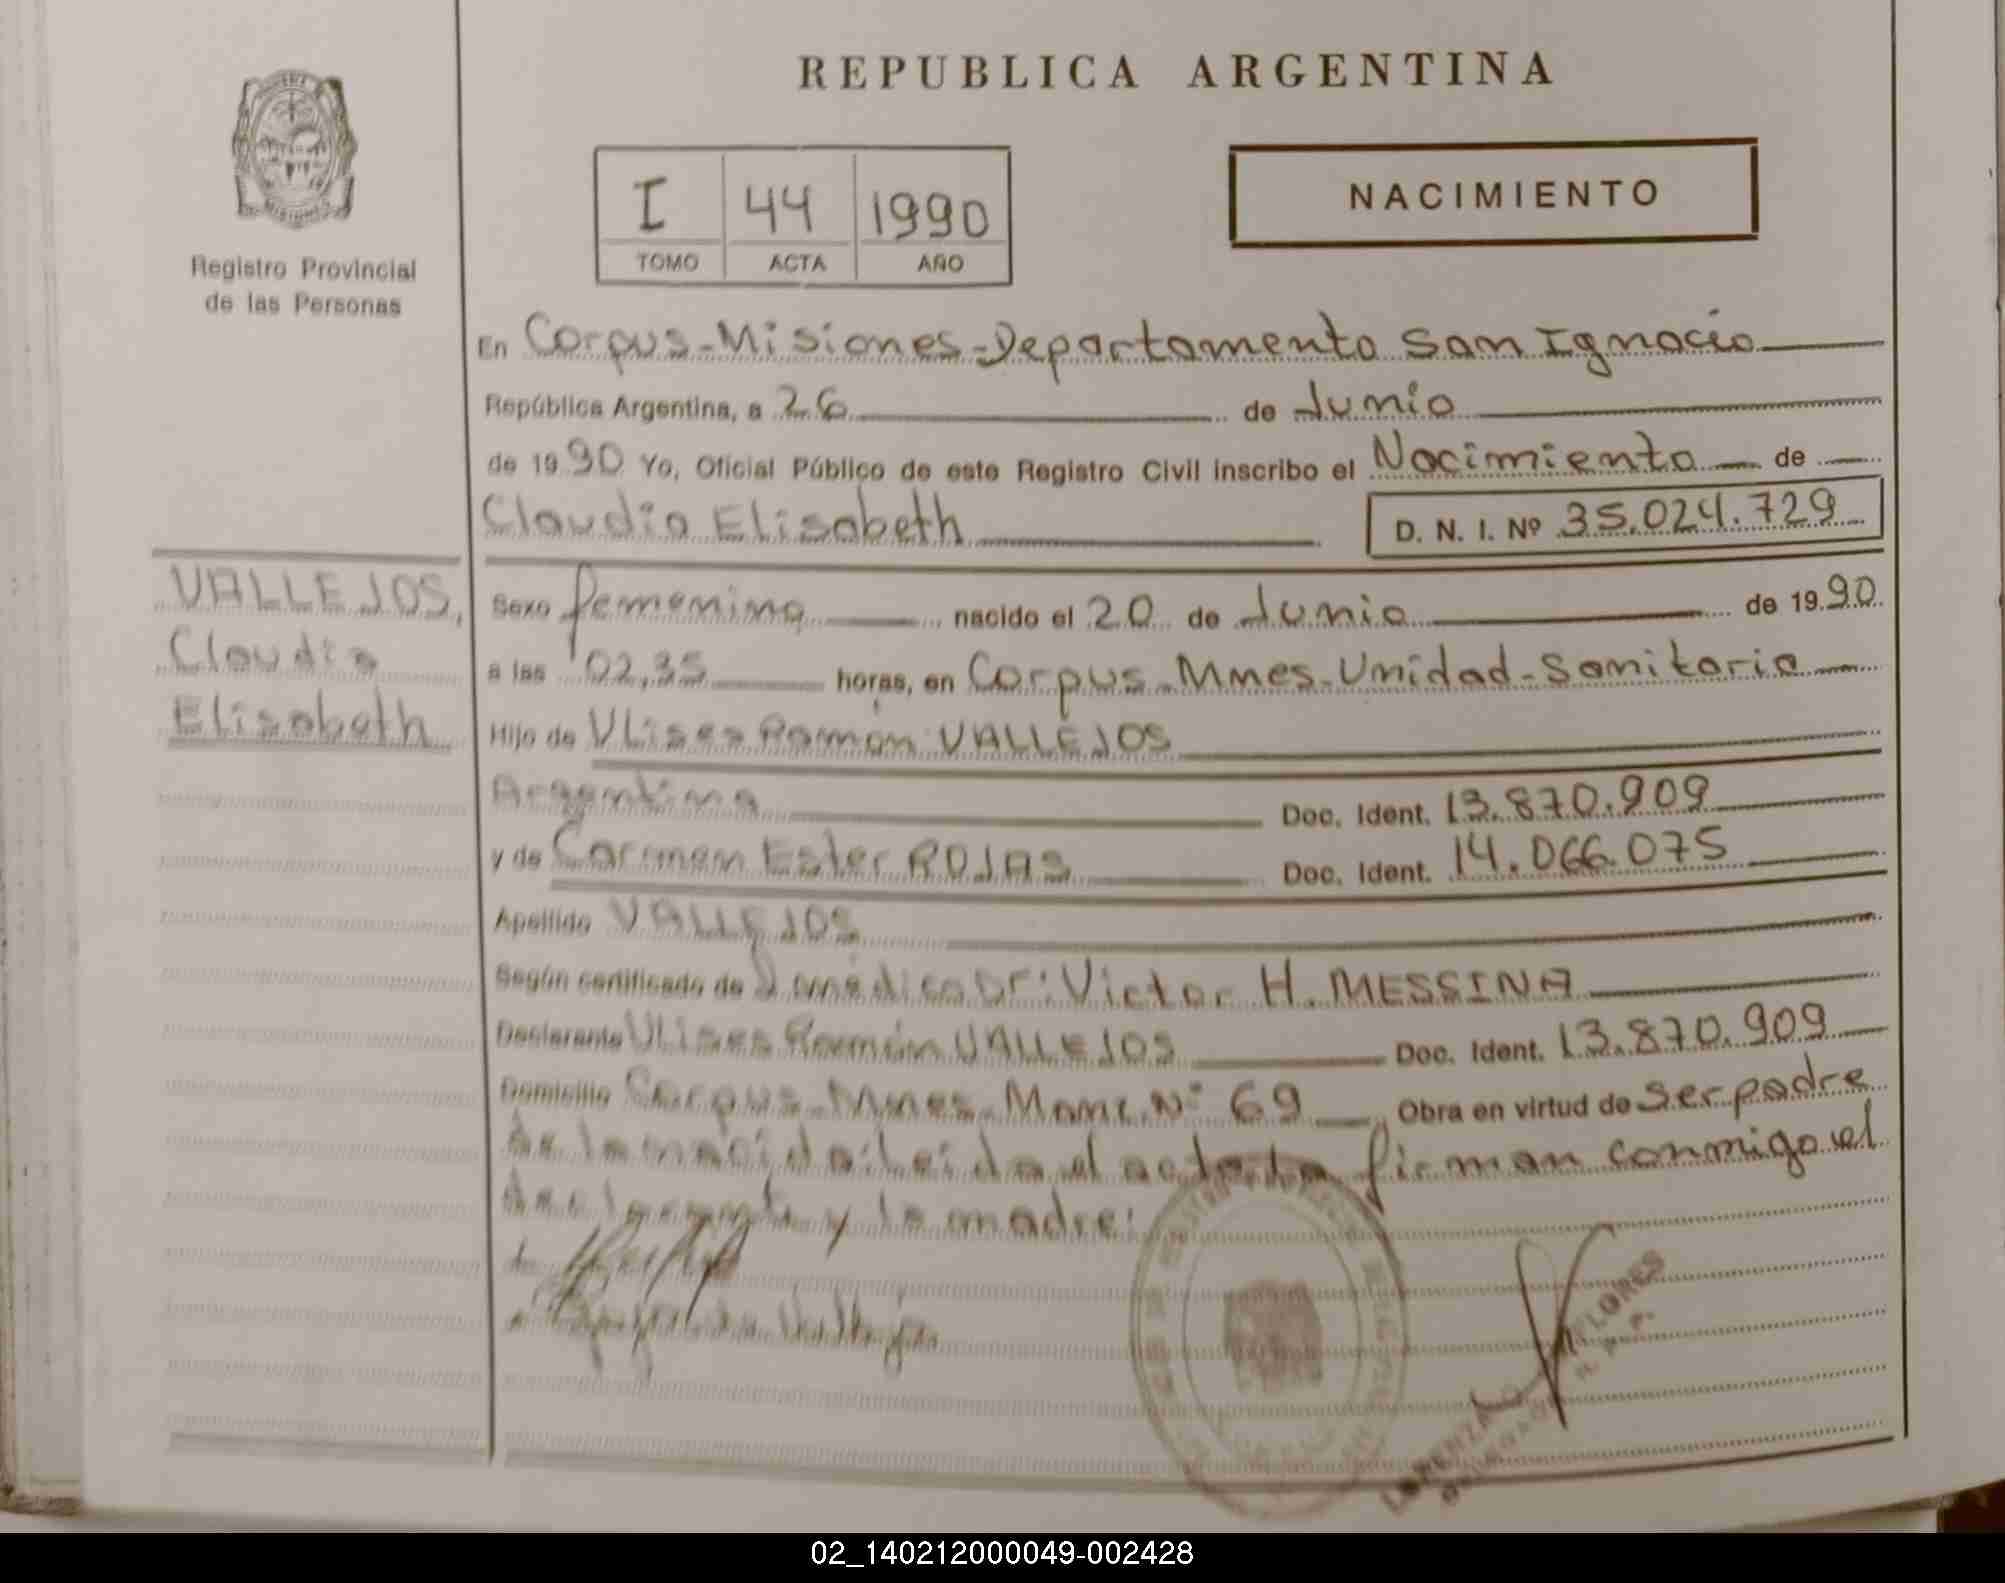 REPUBLICA ARGENTINA
MISIONES
Registro Provincial
de las Personas
I 44 1990
TOMO ACTA AÑO
NACIMIENTO
En Corpus-Misiones-Departamento San Ignacio
República Argentina, a 26 de Junio
de 1990 Yo, Oficial Público de este Registro Civil inscribo el Nacimiento de
Claudia Elisabeth D. N. I. Nº 35.024.729
VALLEJOS,
Claudia
Elisabeth
Sexo femenino nacido el 20 de Junio de 1990
a las 02,35 horas, en Corpus-Mnes-Unidad-Sanitaria
Hijo de Ulises Ramón VALLEJOS
Argentina Doc. Ident. 13.870.909
y de Carmen Ester ROJAS Doc. Ident. 14.066.075
Apellido VALLEJOS
Según certificado de médico Dr: Victor H. MESSINA
Declarante Ulises Ramón VALLEJOS Doc. Ident. 13.870.909
Domicilio Corpus-Mnes-Manz. Nº 69 Obra en virtud de ser padre
de la nacida: Leída el acta la firman conmigo el
declarante y la madre:
LORENZA FLORES
02_140212000049-002428